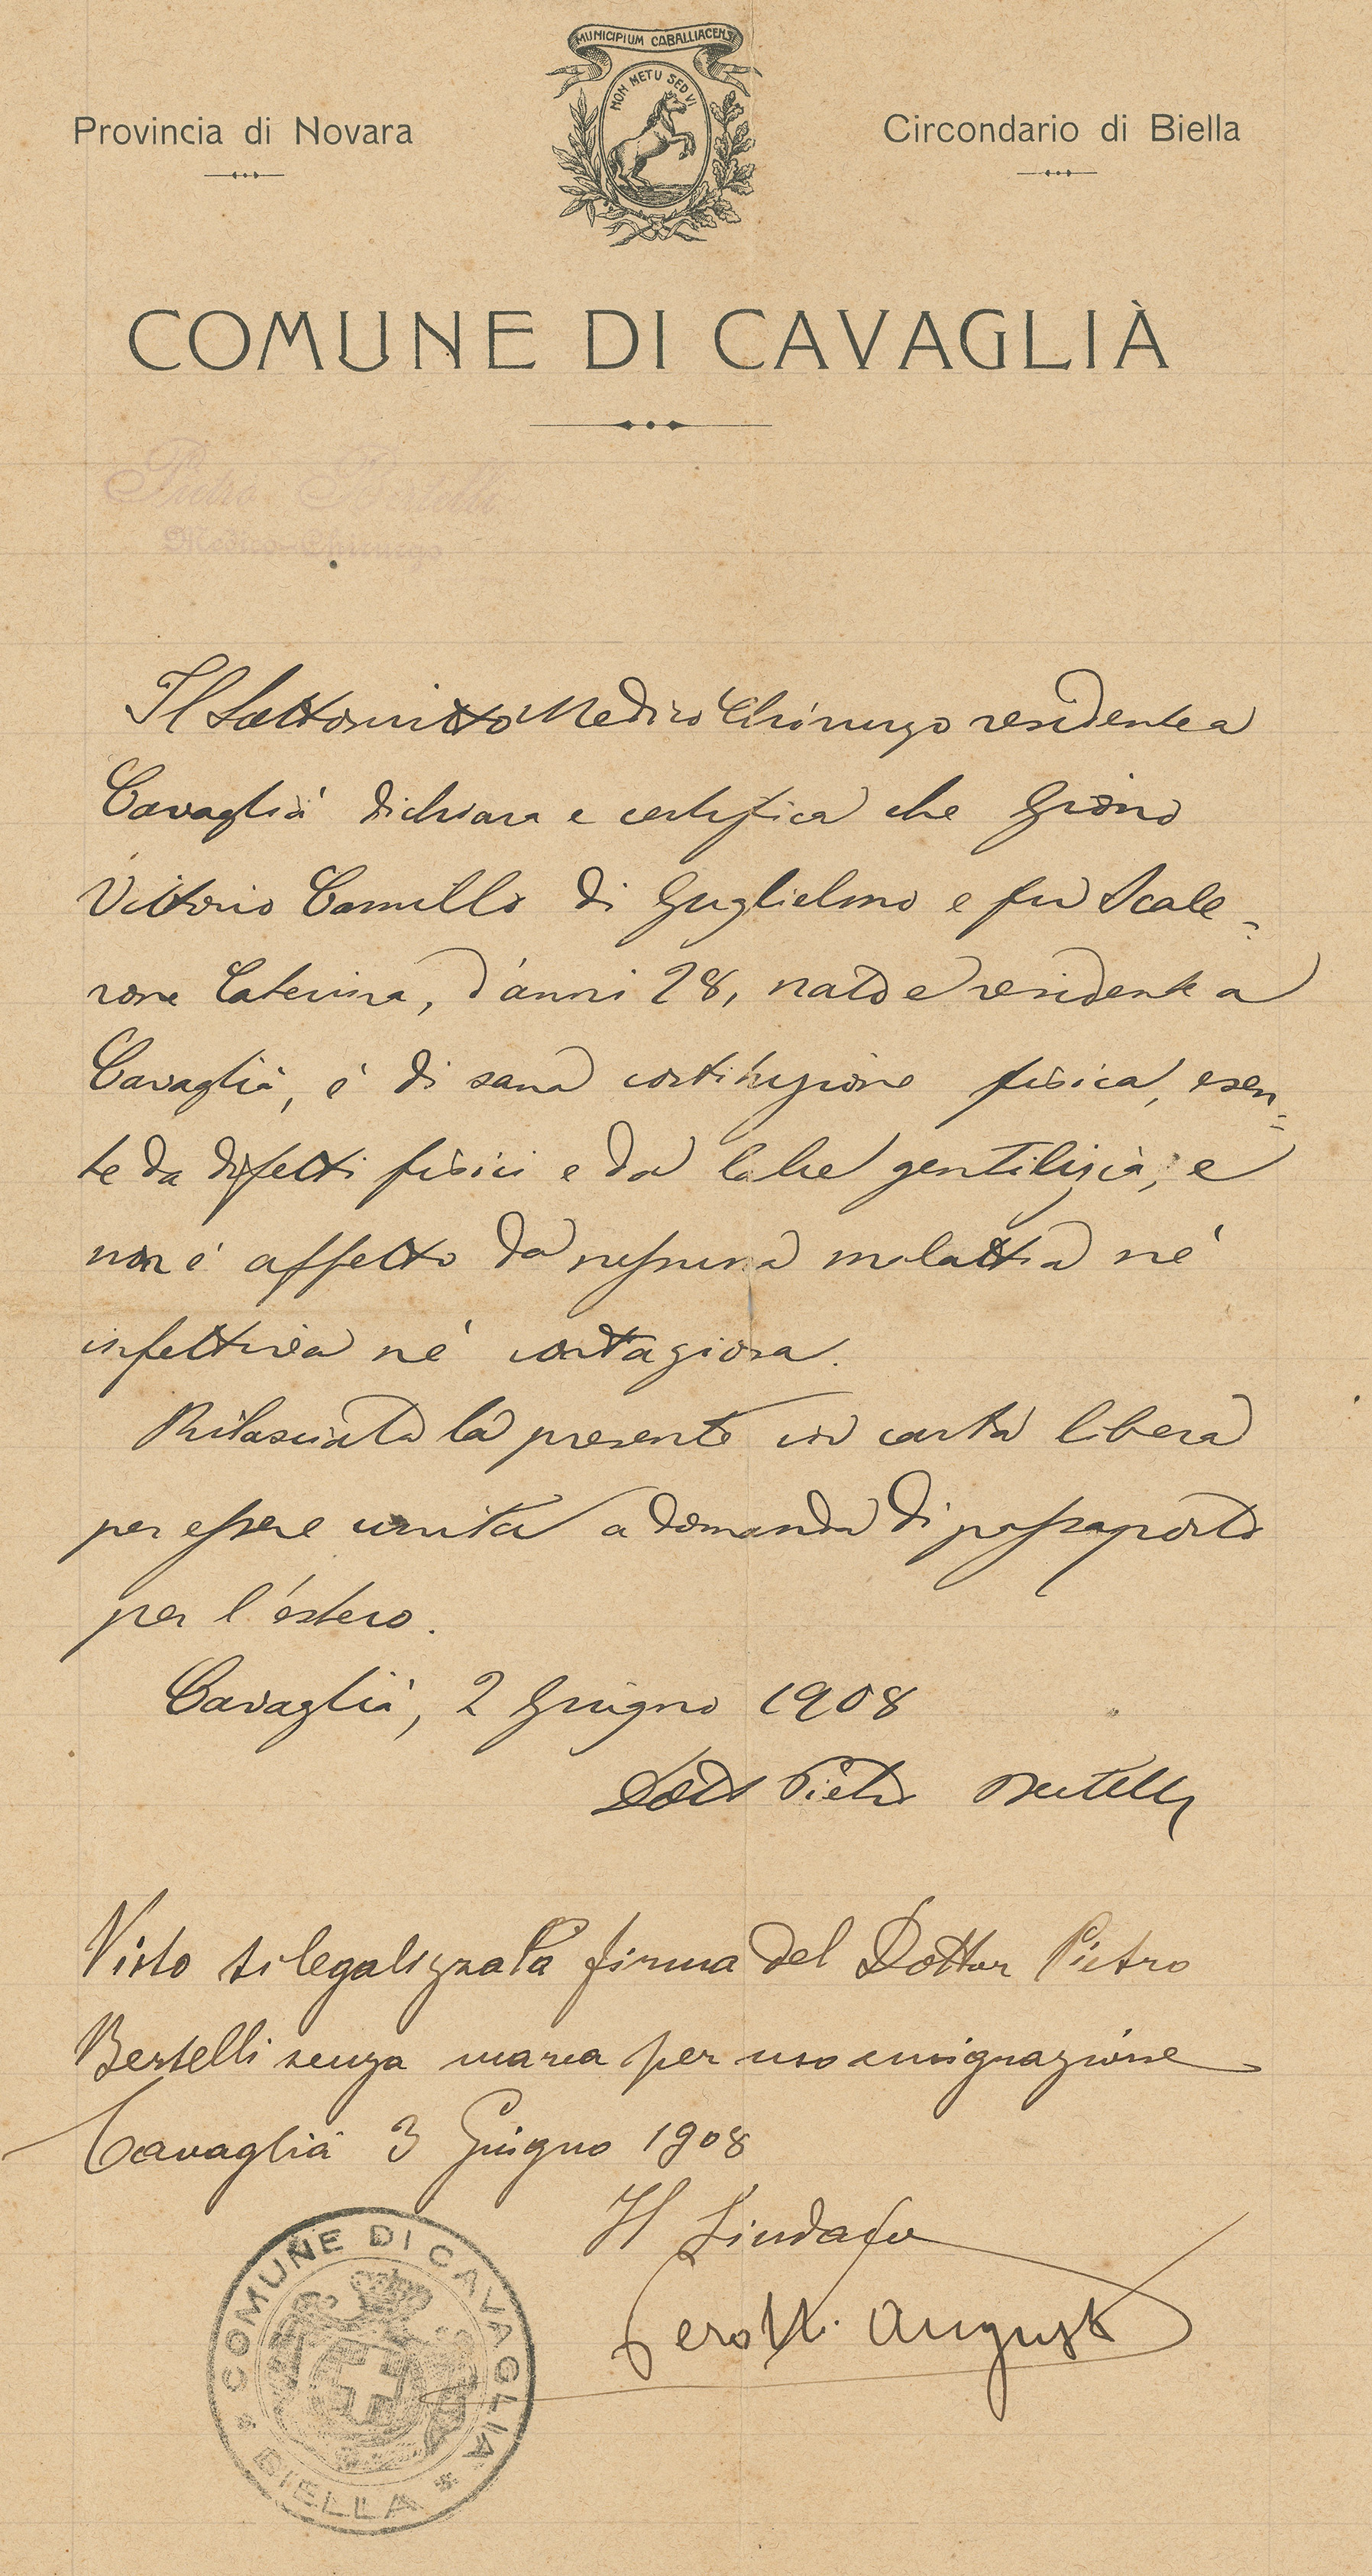 MUNICIPIUM CABALLIACENSE
NON METU SED VI
Provincia di Novara
Circondario di Biella
COMUNE DI CAVAGLIÀ
Pietro Bertelli
Medico-Chirurgo
Il Sottoscritto Medico Chirurgo residente a
Cavaglià dichiara e certifica che Giono
Vittorio Camillo di Guglielmo e fu Scale-
rone Caterina, d'anni 28, nato e residente a
Cavaglià, è di sana costituzione fisica, esen-
te da difetti fisici e da labe gentilizia, e
non è affetto da nessuna malattia nè
infettiva nè contagiosa.
Rilasciata la presente in carta libera
per essere unita a domanda di passaporto
per l'estero.
Cavaglià, 2 Giugno 1908
Dott Pietro Bertelli
Visto si legalizza la firma del Dottor Pietro
Bertelli senza marca per uso emigrazione
Cavaglià 3 Giugno 1908
Il Sindaco
Perotti Augusto
COMUNE DI CAVAGLIA
* BIELLA *